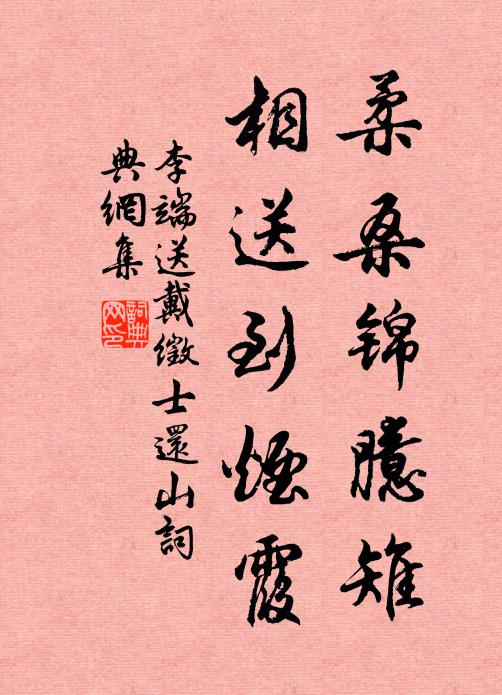 柔桑錦臆雉
相送到煙霞
李端送戴徵士還山詞
典網集
詞典
网印